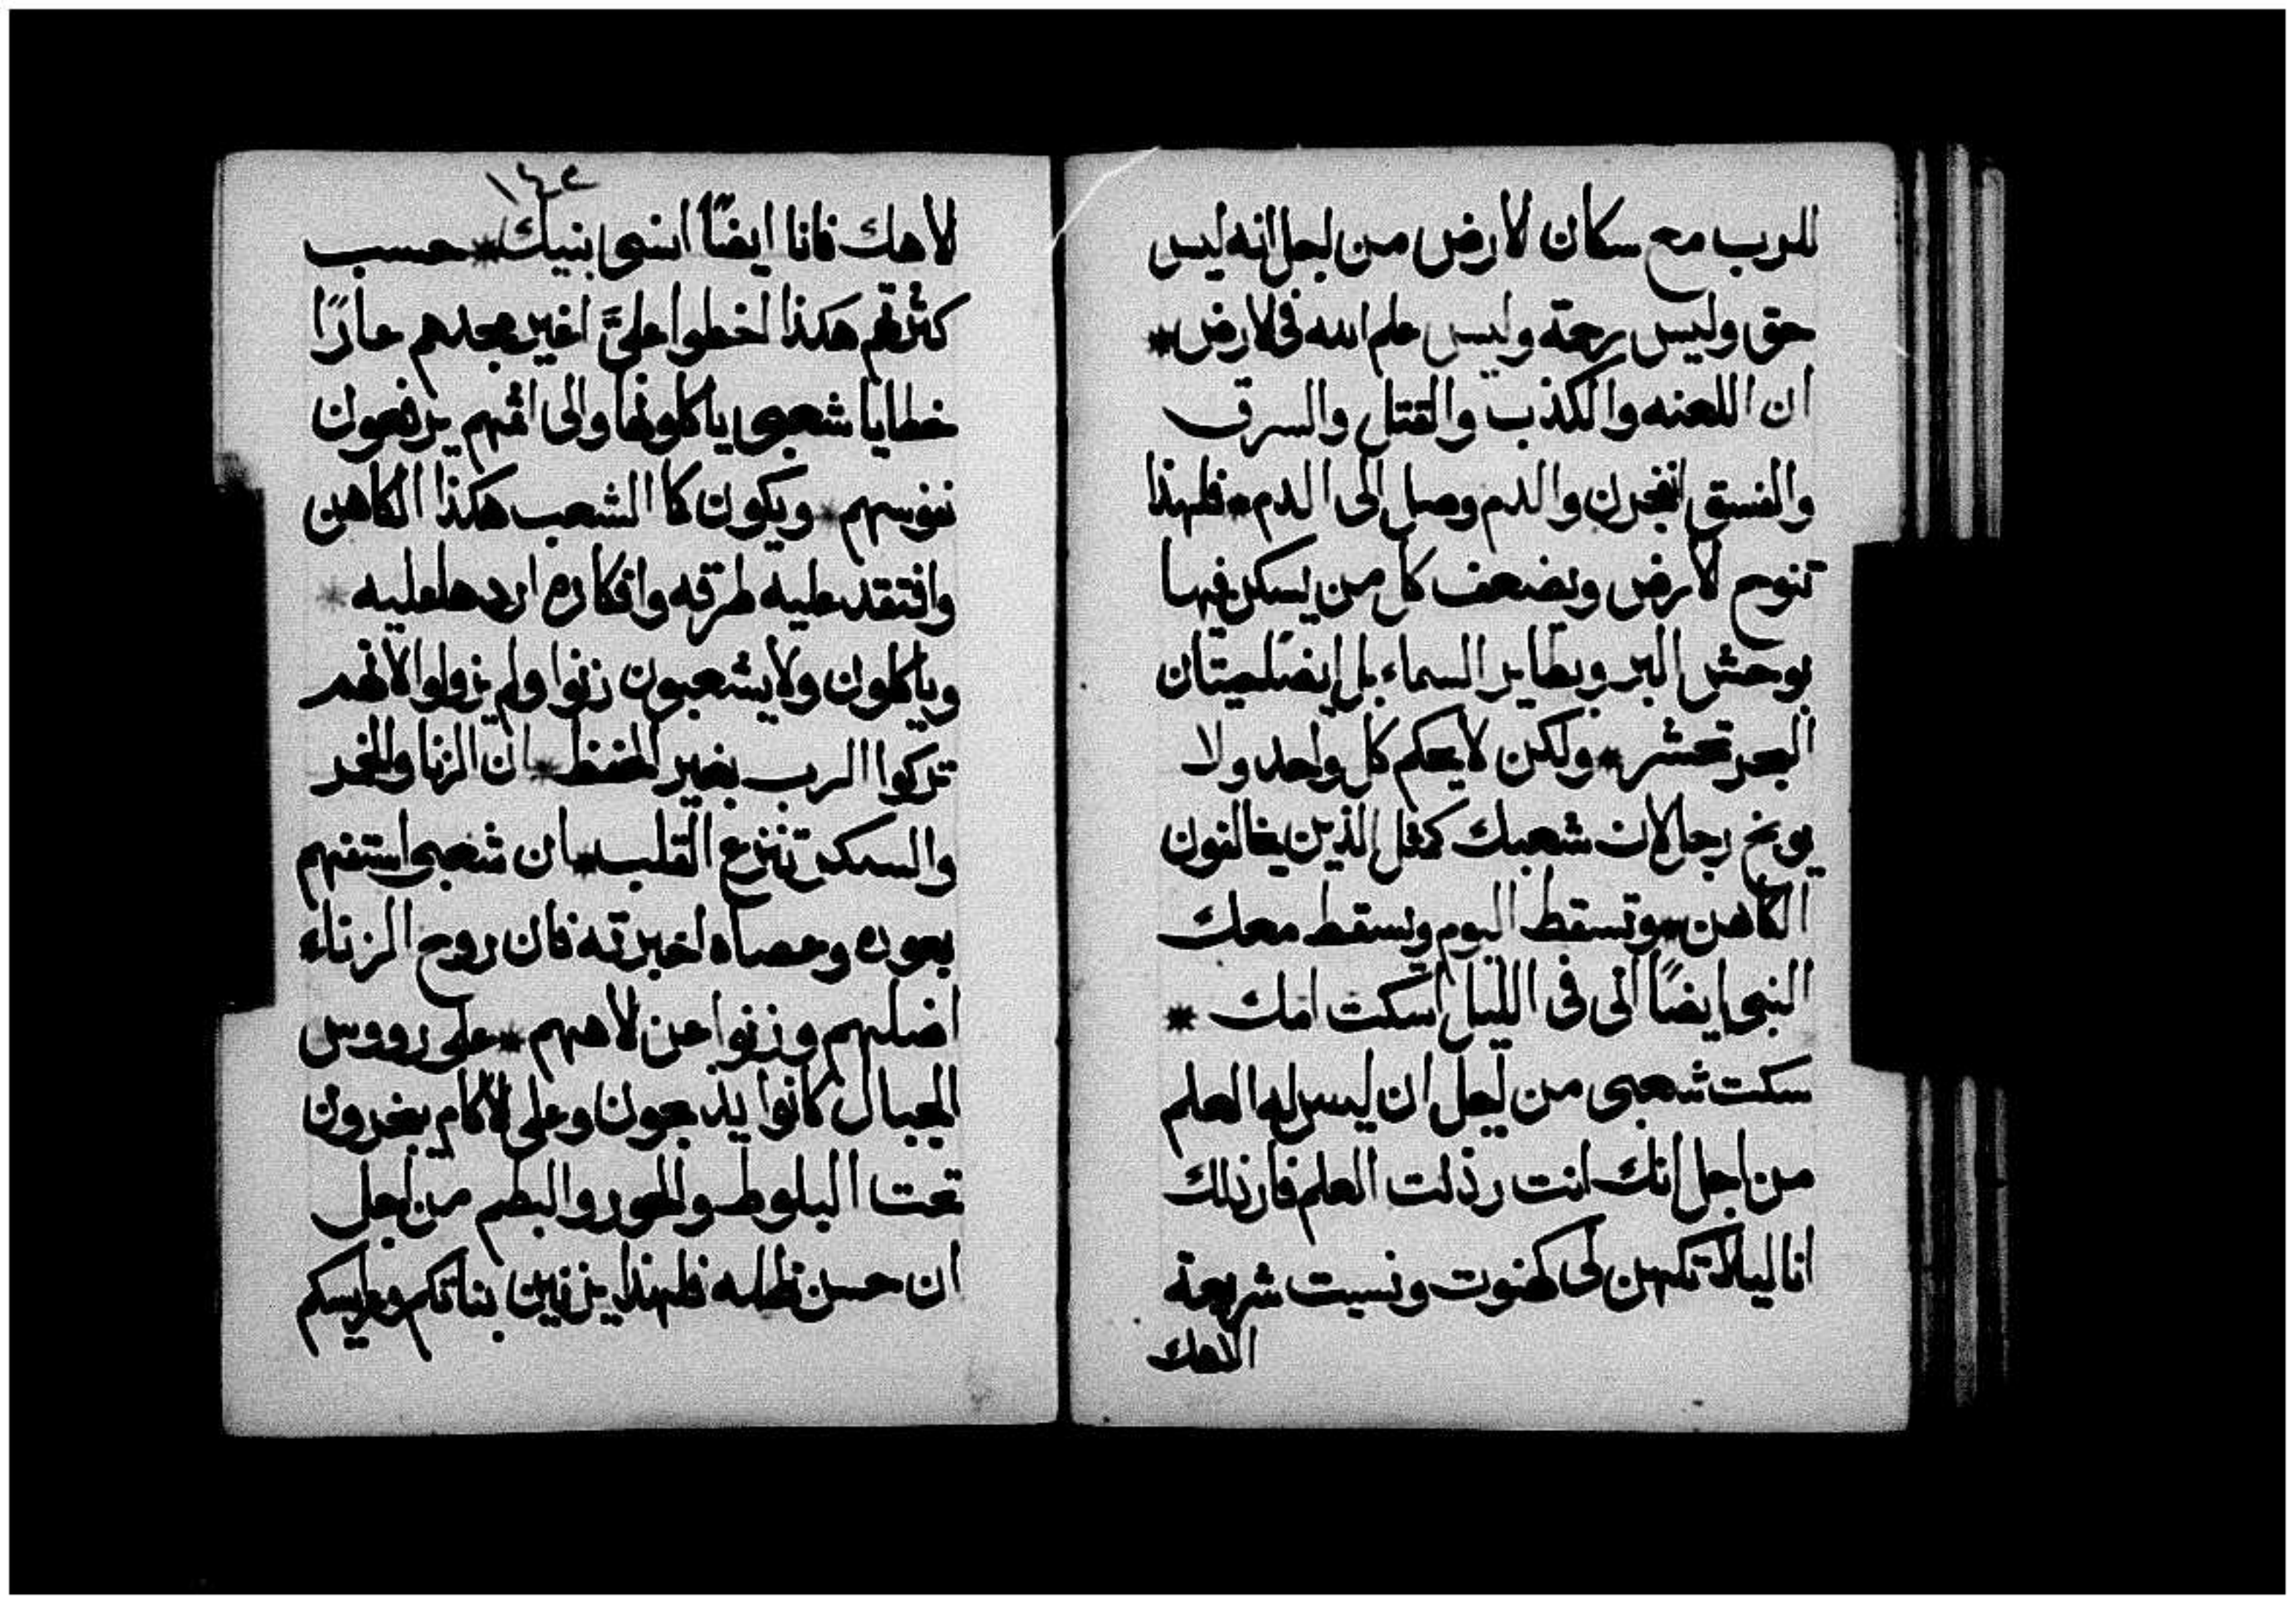 للرب مع سكان الارض من اجل انه ليس
حق وليس رحمة وليس علم الله فى الارض *
ان اللعنه والكذب والقتل والسرق
والفسق انفجرن والدم وصل الى الدم * فلهذا
تنوح الارض ويضعف كل من يسكن فيها
بوحش البر وبطاير السماء بل ايضا حيتان
البحر تحشر * ولكن لا يحكم كل واحد ولا
يوبخ رجل لان شعبك كمثل الذين يخالفون
الكاهن * وتسقط اليوم ويسقط معك
النبى ايضًا الى فى الليل اسكت امك *
سكت شعبى من اجل ان ليس له العلم
من اجل انك انت رذلت العلم فارذلك
انا ليلا تكهن لى كهنوت ونسيت شريعة
الاهك
١٤٢
لاهك فانا ايضًا انسى بنيك * حسب
كثرتهم هكذا اخطوا علىَّ اغير مجدهم عارًا
خطايا شعبى ياكلونها والى اثمهم يرفعون
نفوسهم * ويكون كا الشعب هكذا الكاهن
وافتقد عليه طرقه وافكاره اردها عليه *
وياكلون ولا يشعبون زنوا ولم يزولوا لانهم
تركوا الرب بغير الحفظ * ان الزنا والخمر
والسكر تنزع القلب * ان شعبى استفهم
بعوده وعصاه اخبرته فان روح الزناء
اضلهم وزنوا عن لاههم * على رووس
الجبال كانوا يذبحون وعلى الاكام يبخرون
تحت البلوط والحور والبطم من اجل
ان حسن ظله فلهذا يزنين بناتكم وعرايسكم